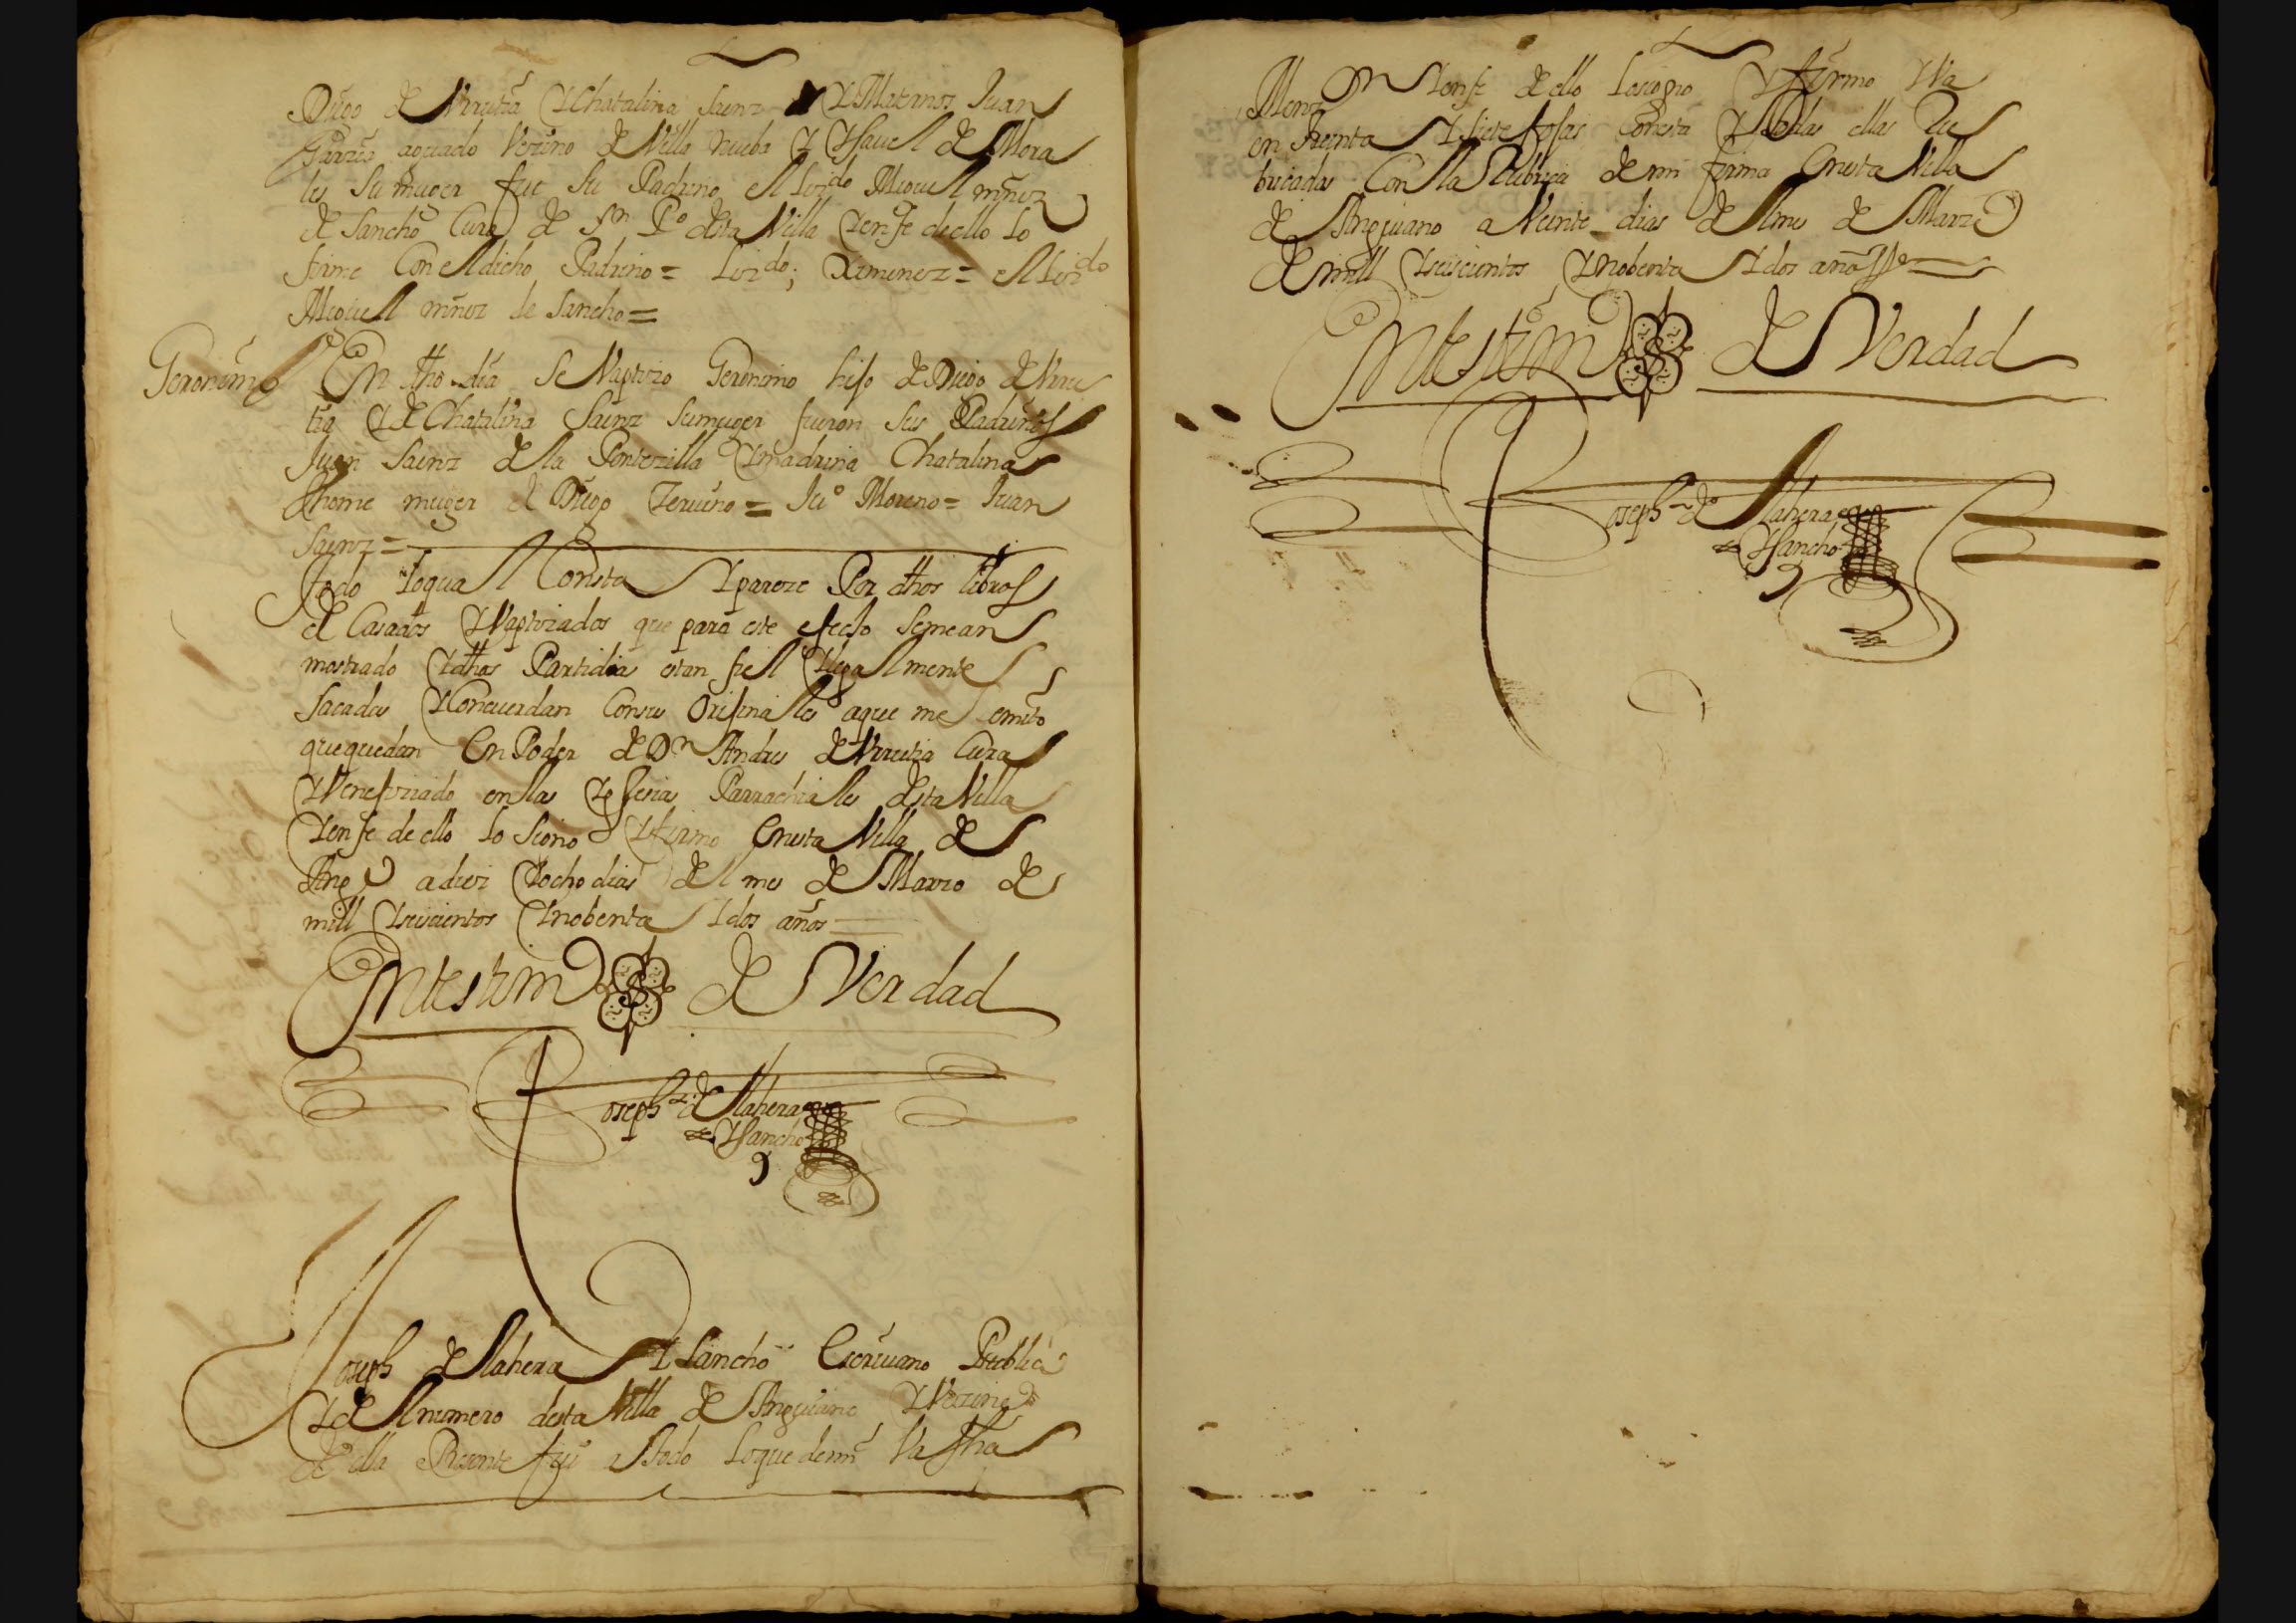 Diego de Vrrutia Y Chatalina Saenz Y Maternos Juan
Garzes ageado Vezino de Villa nueba Y Ysauel de Mora
les su muger fue su Padrino el lizdo Miguel mñez
de Sancho Cura de Sn Po desta Villa Yenfe de ello lo
firme Con el dicho Padrino = Lizdo; Ximenez = el lizdo
Miguel mñez de Sancho =
Geronimo
En dho dia se Vaptizo Geronimo hijo de Diego de Vrru
tia Y de Chatalina Saenz su muger fueron sus Padrinos
Juan Saenz de la Pontezilla Y madrina Chatalina
thome muger de Diego Teruino = Juo Moreno = Juan
Saenz =
Todo loqual Consta Y pareze Por dhos libros
de Casados Y Vaptizados que para este efecto semean
mostrado Y dhas Partidas estan fiel Y legalmente
sacadas Y Concuerdan Consus Orijinales aque me remito
que quedan En Poder de Dn Andres de Vrrutia Cura
Y Venefiziado en las Yglesias Parrochiales desta Villa
Yenfe de ello lo signo Y firmo Enesta Villa de
Ango a diez Y ocho dias del mes de Marzo de
mill Y seiscientos Y nobenta Y dos años
En testimo de Verdad
Joseph de la hera
Y Sancho
Joseph de la hera Y Sancho Escriuano Publico
Y del numero desta Villa de Anguiano Y Vezino
de ella Presente fui a todo loque demi Va fha
Menzon Yenfe de ello lo signo Y firmo Y Va
en treinta Y siete fojas Con esta Y todas ellas Ru
bricadas Con la Rubrica de mi firma Enesta Villa
de Anguiano a Veinte dias del mes de Marzo
de mill Y seiscientos Y nobenta Y dos años
En testimo de Verdad
Joseph de la hera
Y Sancho